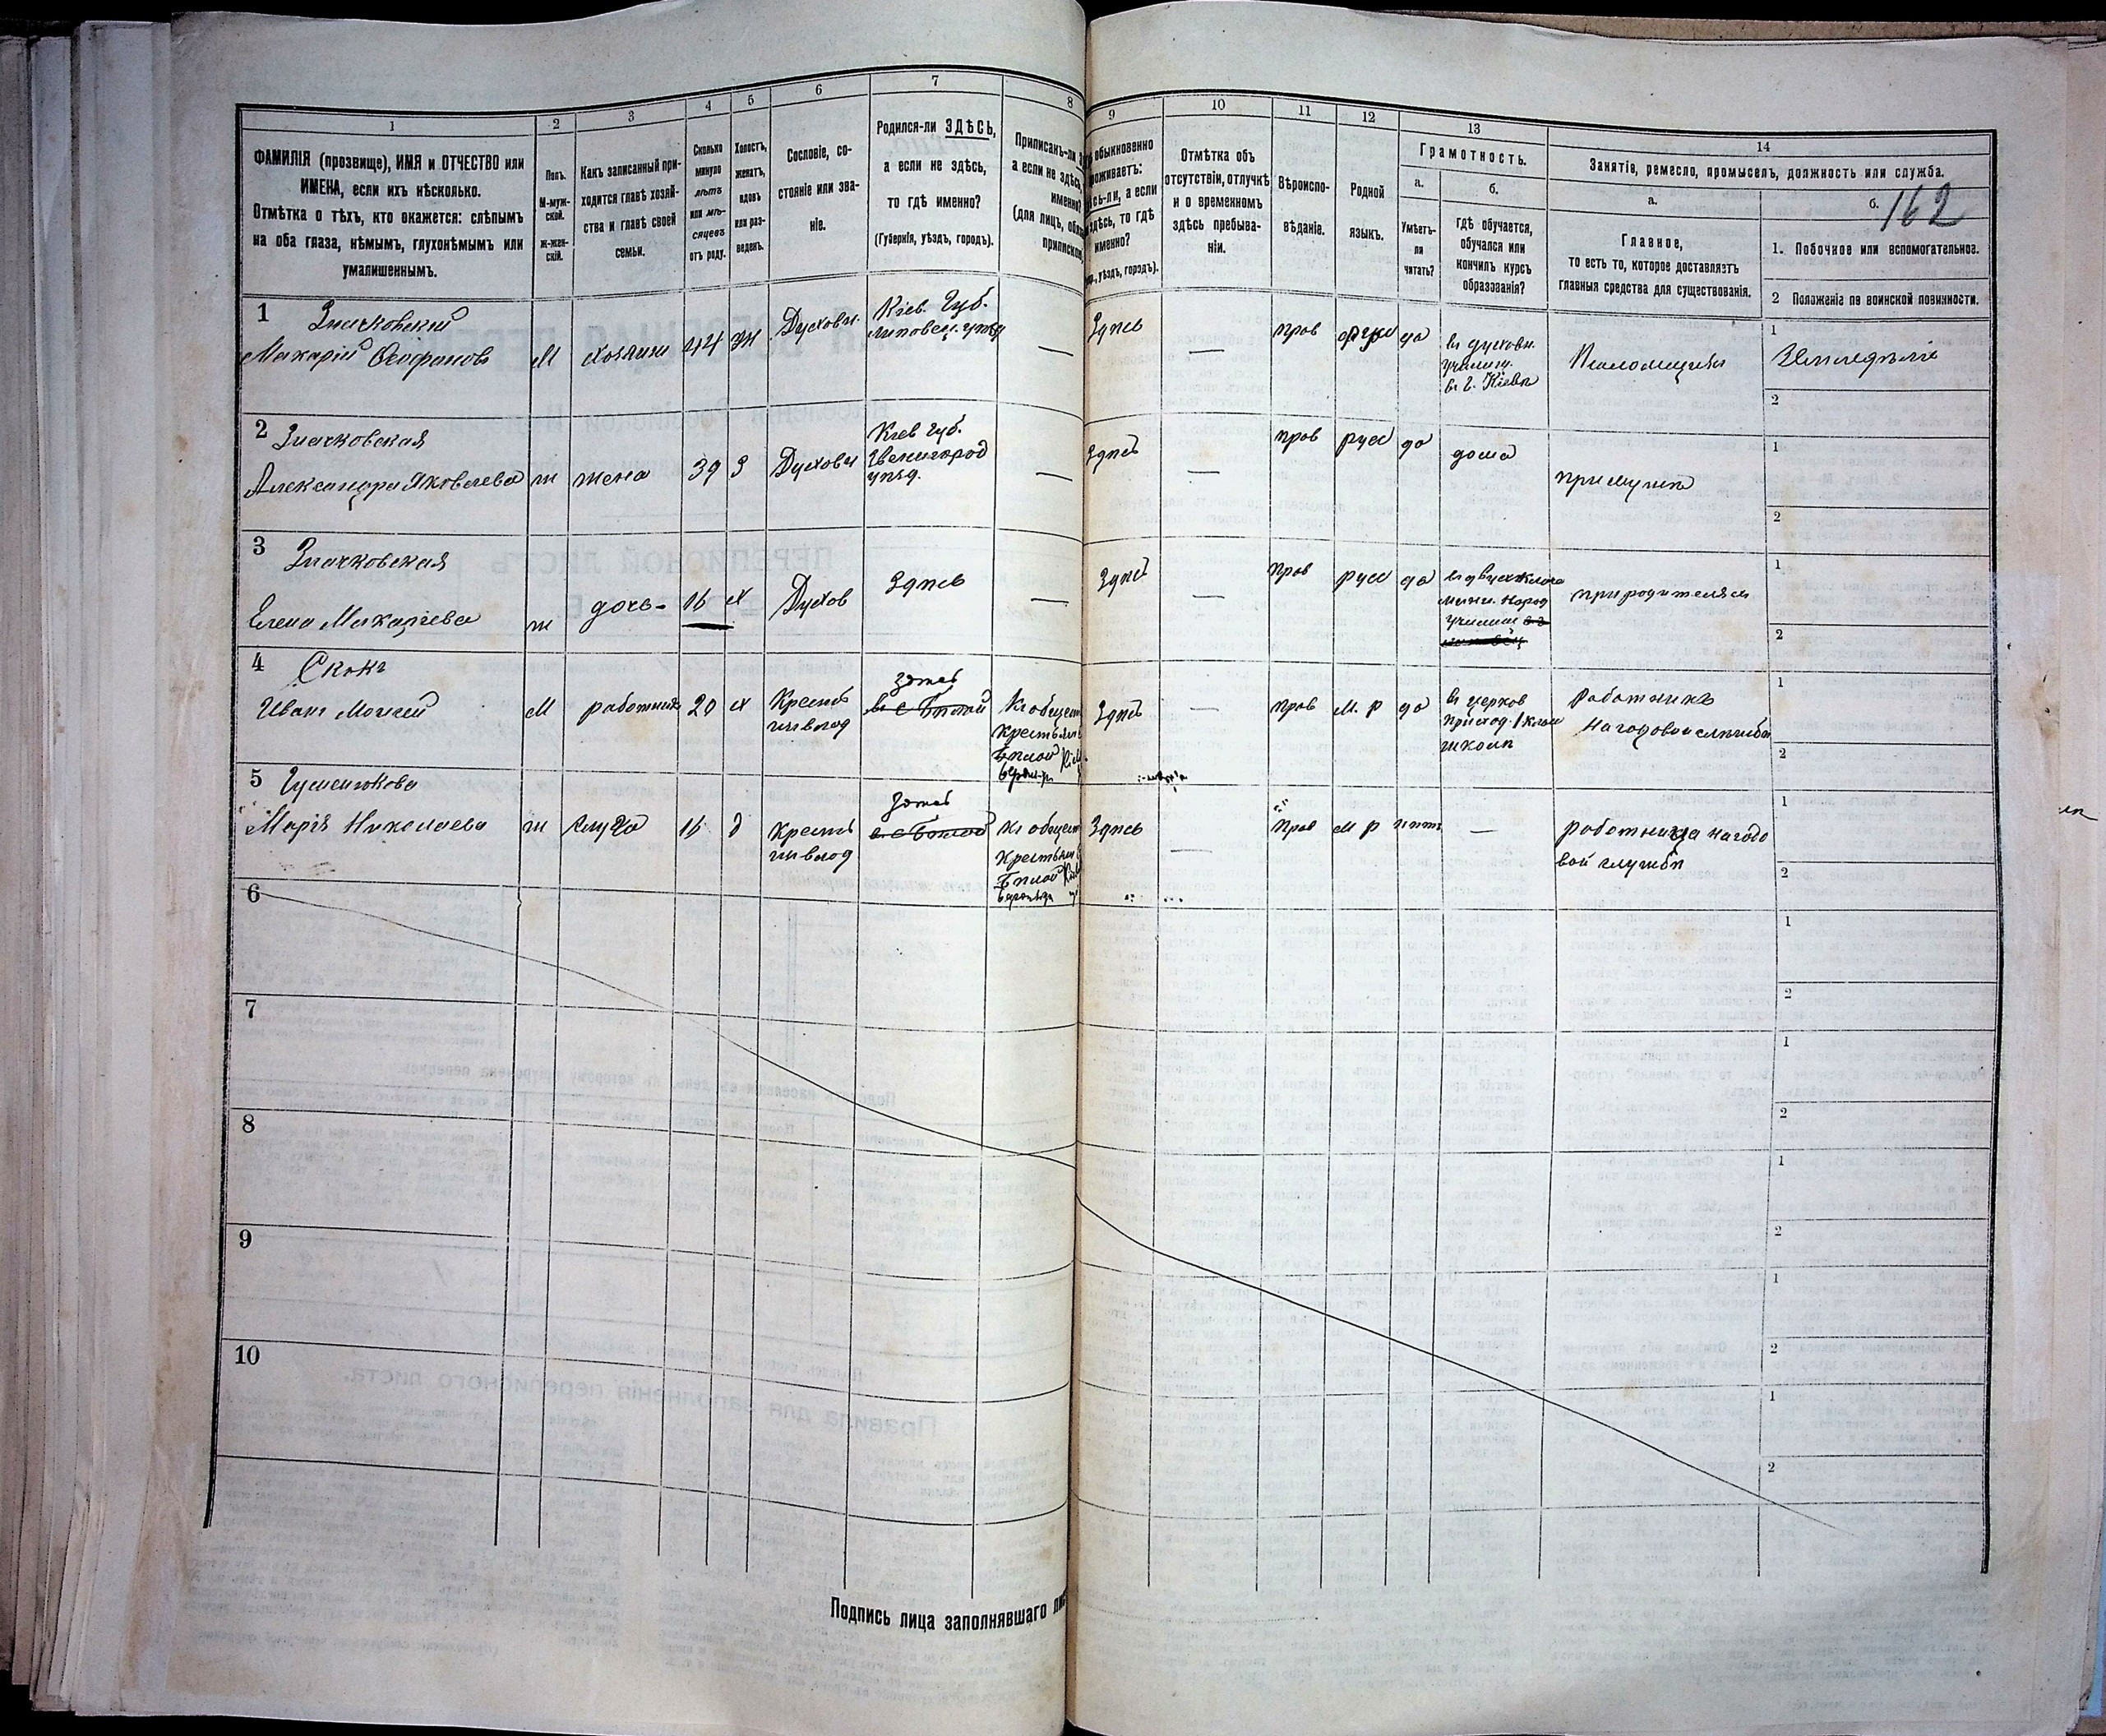 1
ФАМИЛІЯ (прозвище), ИМЯ и ОТЧЕСТВО или
ИМЕНА, если ихъ нѣсколько.
Отмѣтка о тѣхъ, кто окажется: слѣпымъ
на оба глаза, нѣмымъ, глухонѣмымъ или
умалишеннымъ.
2
Полъ.
М-муж-
ской.
ж-жен-
скій.
3
Какъ записанный при-
ходится главѣ хозяй-
ства и главѣ своей
семьи.
4
Сколько
минуло
лѣтъ
или мѣ-
сяцевъ
отъ роду.
5
Холостъ,
женатъ,
вдовъ
или раз-
веденъ.
6
Сословіе, со-
стояніе или зва-
ніе.
7
Родился-ли ЗДѢСЬ,
а если не здѣсь,
то гдѣ именно?
(Губернія, уѣздъ, городъ).
8
Приписанъ-ли
а если не здѣсь,
именно?
(для лицъ,
9
обыкновенно
а если
здѣсь, то гдѣ
именно?
уѣздъ, городъ).
10
Отмѣтка объ
отсутствіи, отлучкѣ
и о временномъ
здѣсь пребыва-
ніи.
11
Вѣроиспо-
вѣданіе.
12
Родной
языкъ.
13
Грамотность.
а.
Умѣетъ-
ли
читать?
б.
Гдѣ обучается,
обучался или
кончилъ курсъ
образованія?
14
Занятіе, ремесло, промыселъ, должность или служба.
а.
Главное,
то есть то, которое доставляетъ
главныя средства для существованія.
б.
162
1. Побочное или вспомогательное.
2 Положеніе по воинской повинности.
1
Макарій Ѳеофановъ
М
хозяинъ
44
жн
Духовн.
Кіев. Губ.
Липовец. уѣзд
—
Здѣсь
—
прав
русс
да
въ духовн.
училищ.
въ г. Кіевѣ
Псаломщикъ
1
Земледѣліе
2
2
Значковская
Александра Яковлева
ж
жена
39
З
Духовн
Кіев Губ.
Звенигород
уѣзд.
—
Здѣсь
—
прав
русс
да
дома
при мужѣ
1
2
3
Значковская
Елена Макаріева
ж
дочь
16
х
Духов
Здѣсь
—
Здѣсь
—
прав
русс
да
въ двухклас
Мин. Народ
училищ
при родителях
1
2
4
Сконъ
Иванъ
М
работник
20
х
Крестъ
Здѣсь
Къ общест
крестьян
Бѣлой
Здѣсь
—
прав
м. р
да
въ церков
приход. 1 клас
школѣ
Работникъ
на годовой службѣ
1
2
5
Марія Николаева
ж
слуга
16
д
крестъ
Здѣсь
Къ общест
крестьян
Бѣлой
Здѣсь
—
прав
м р
нѣтъ
—
работница на годо
вой службѣ
1
2
6
1
2
7
1
2
8
1
2
9
1
2
10
1
2
Подпись лица заполнявшаго